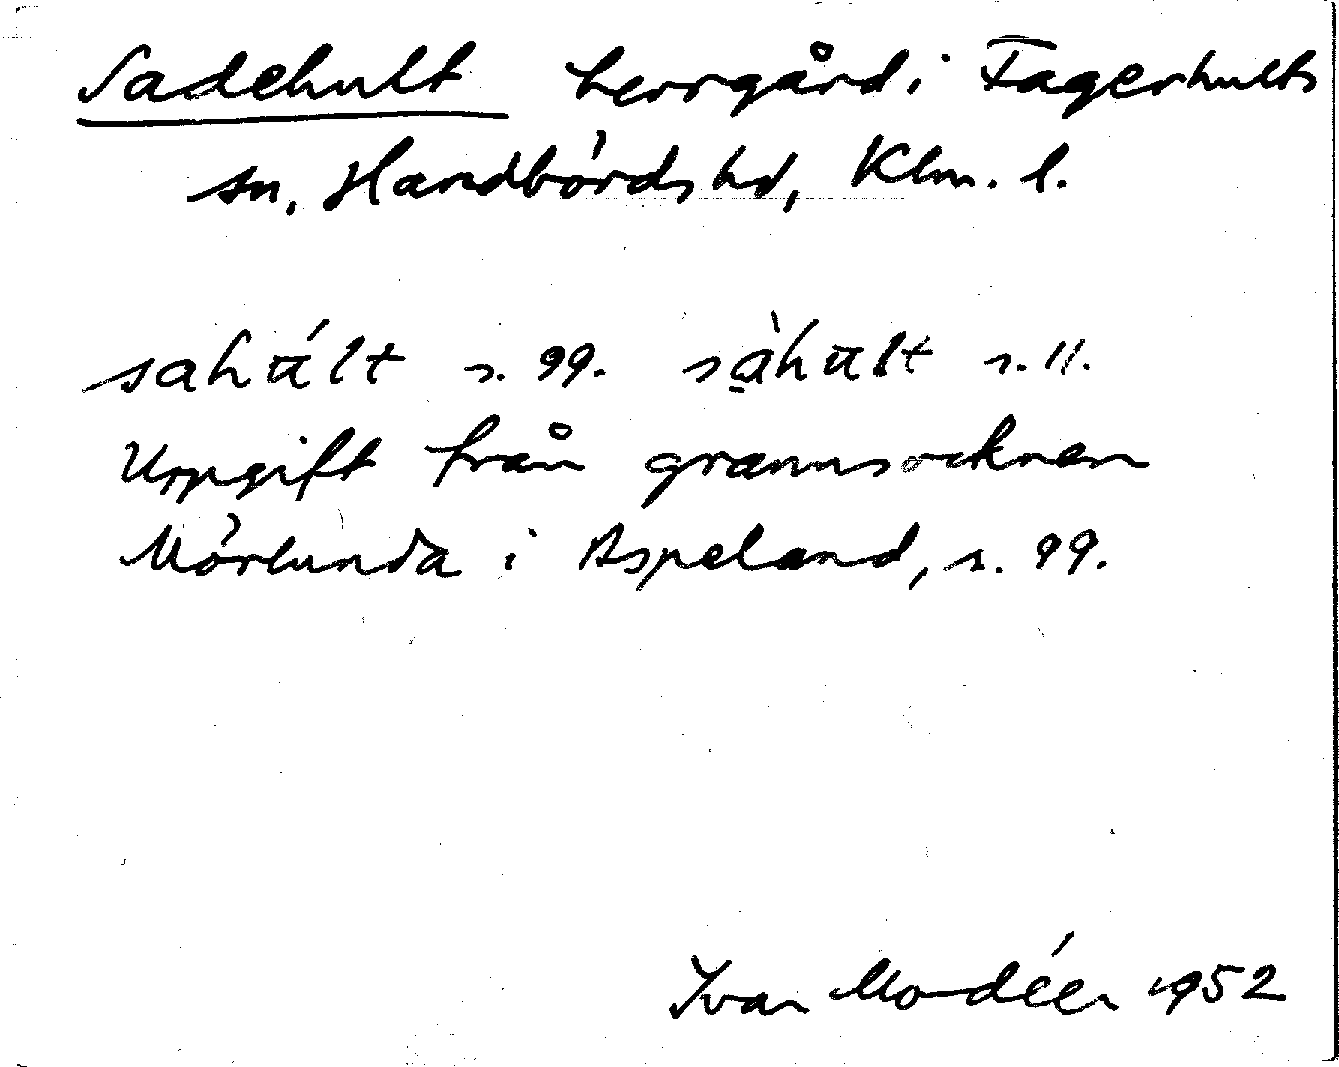 Sadehult herrgård i Fagerhults
sn, Handbörds hd, Klm. l.
sahúlt s. 99. sàhult s. 11.
Uppgift från grannsocknen
Mörlunda i Aspeland, s. 99.
Ivar Modéer 1952